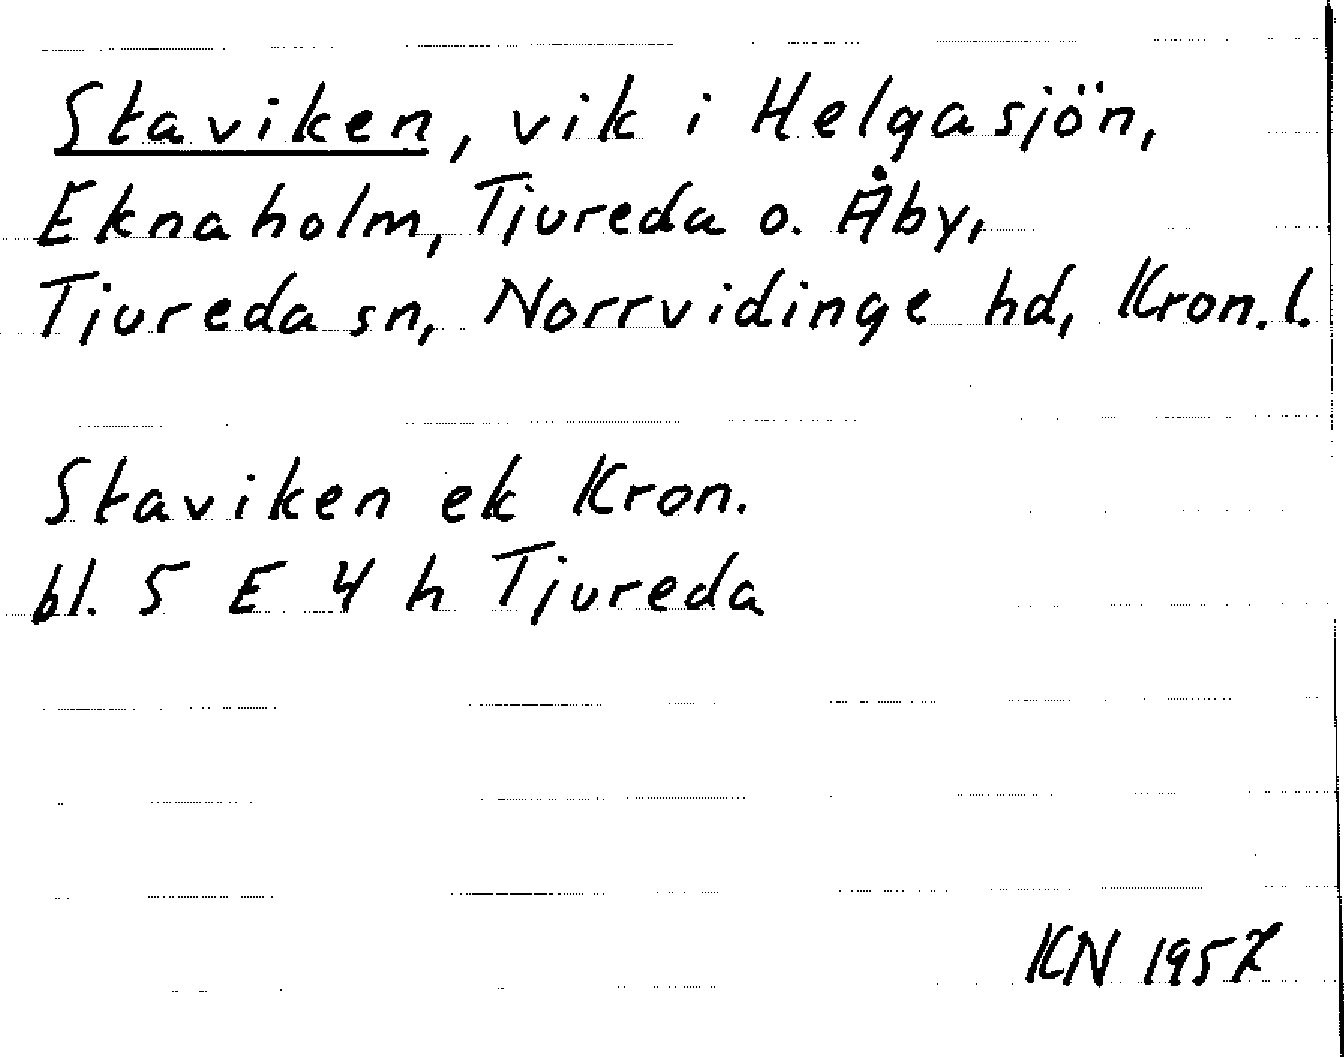 Staviken, vik i Helgasjön,
Eknaholm, Tjureda o. Åby,
Tjureda sn, Norrvidinge hd, Kron. l.
Staviken ek Kron.
bl. 5 E 4 h Tjureda
KN 1957